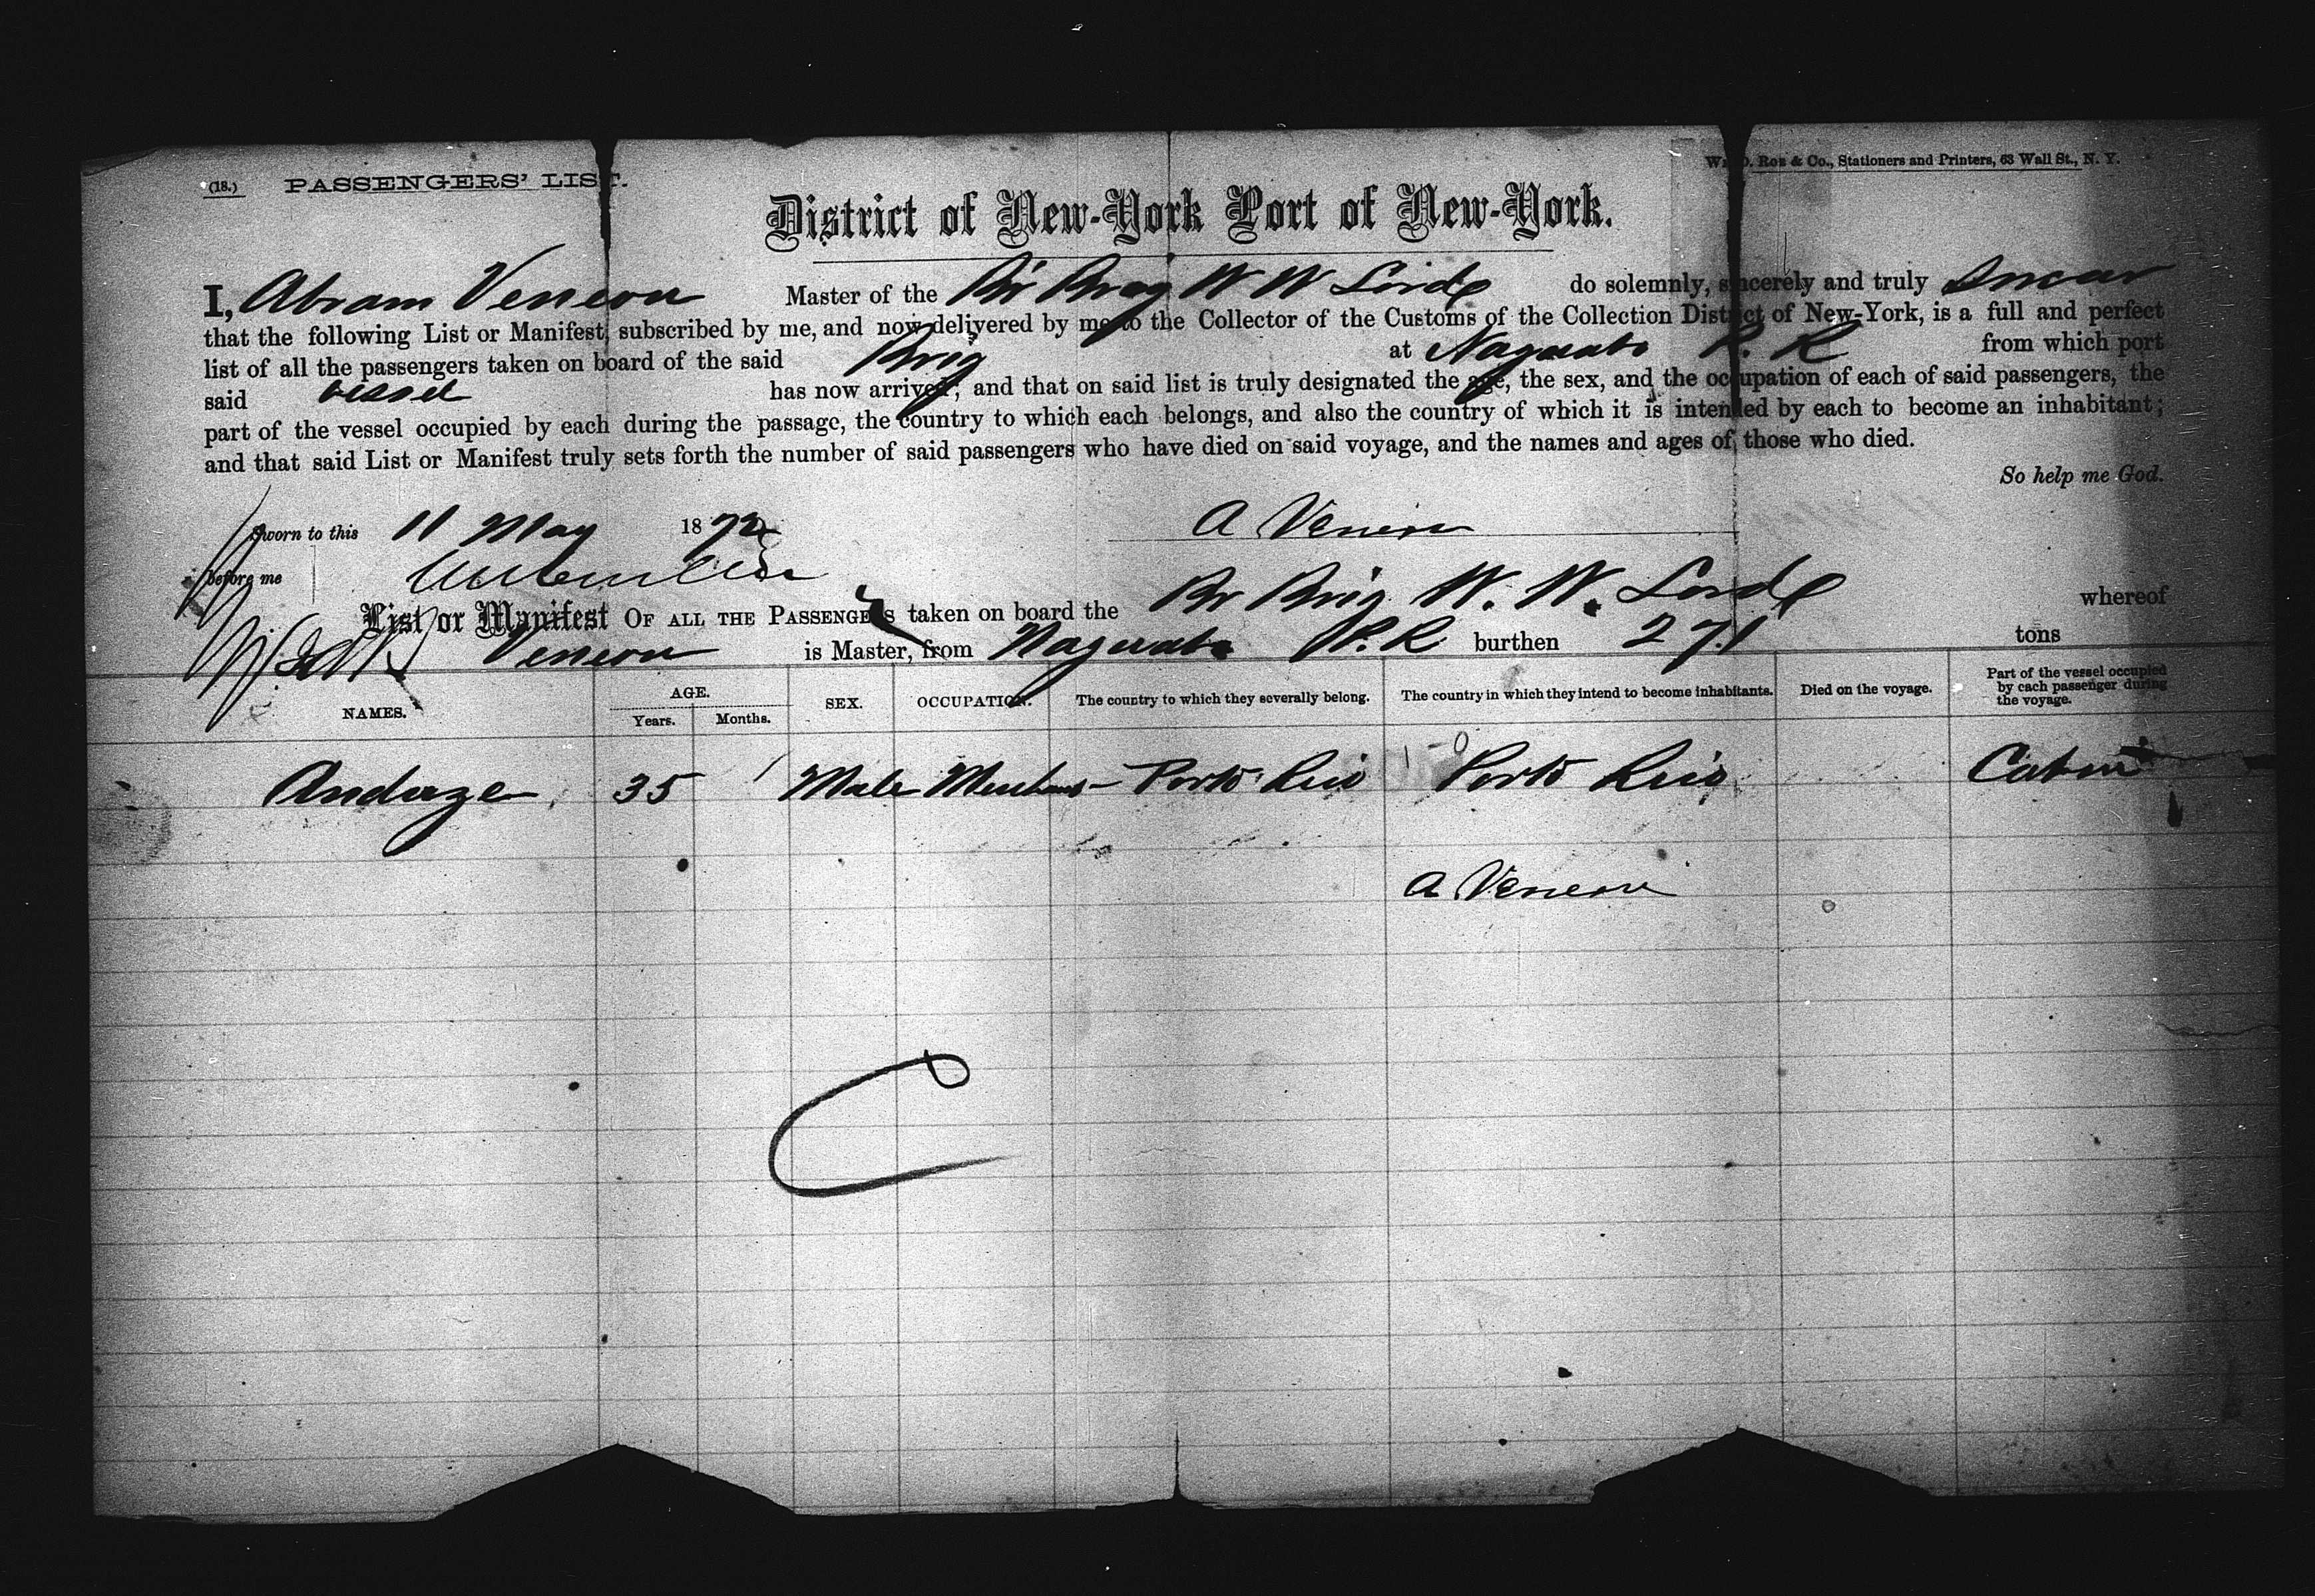 (18.) PASSENGERS' LIST.
& Co., Stationers and Printers, 63 Wall St., N. Y.
District of New-York Port of New-York.
I, Abram Master of the Br Brig W W Lord do solemnly, sincerely and truly swear
that the following List or Manifest, subscribed by me, and now delivered by me to the Collector of the Customs of the Collection District of New-York, is a full and perfect
list of all the passengers taken on board of the said Brig at Naguabo P. R from which port
said vessel has now arrived; and that on said list is truly designated the age, the sex, and the occupation of each of said passengers, the
part of the vessel occupied by each during the passage, the country to which each belongs, and also the country of which it is intended by each to become an inhabitant;
and that said List or Manifest truly sets forth the number of said passengers who have died on said voyage, and the names and ages of those who died.
So help me God.
Sworn to this 11 May 1872
A
before me
List or Manifest OF ALL THE PASSENGERS taken on board the Br Brig W. W. Lord whereof
is Master, from Naguabo P. R burthen 271 tons
NAMES. AGE. Years. Months. SEX. OCCUPATION. The country to which they severally belong. The country in which they intend to become inhabitants. Died on the voyage. Part of the vessel occupied by each passenger during the voyage.
35 Male Merchant Porto Rico Porto Rico Cabin
A
C